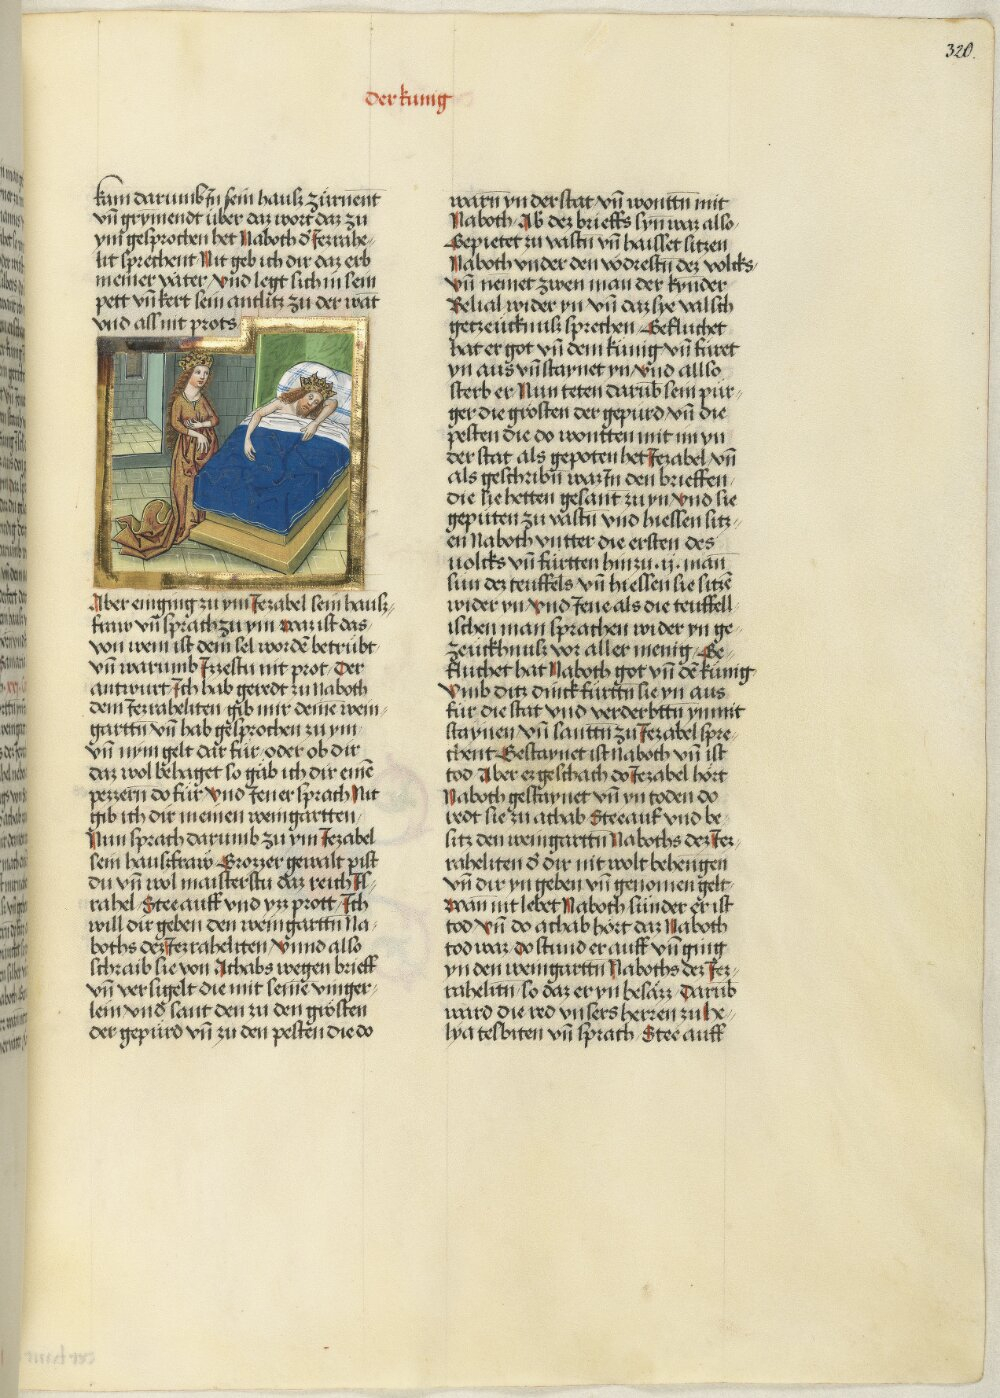 320.
der kunig
kam darumb jn sein hauß zürnent
vn̄ grymendt über daz wort daz zu
ym gesprochen het Naboth d̕ Jezrahe-
lit sprechent Nit geb ich dir daz erb
meiner väter / vnd legt sich in sein
pett vn̄ kert sein antlitz zu der wāt
vnd ass nit prots
Aber einging zu ym Jezabel sein hauß-
fraw vn̄ sprach zu ym waz ist das
von wem ist dein sel wordē betrübt
vn̄ warumb Jzzestu nit prot / Der
antwurt / Jch hab geredt zu Naboth
dem Jezraheliten gib mir deine wein-
gartt̄n vn̄ hab gesprochen zu ym
vn̄ nym gelt dar für / oder ob dir
daz wol behaget so gib ich dir einē
pezzern do für / vnd Jener sprach Nit
gib ich dir meinen weingartten /
Nun sprach darumb zu ym Jezabel
sein haußfraw / Grozzer gewalt pist
du vn̄ wol maisterstu daz reich Js-
rahel / Stee auff vnd yzz prott / Jch
will dir geben den weingartt̄n Na-
boths dez Jezraheliten / Vnnd also
schraib sie von Achabs wegen brieff
vn̄ versigelt die mit seinē vinger-
lein vnd̕ sant den zu den grösten
der gepürd vn̄ zu den pesten die do
warn yn der stat vn̄ wontt̄n mit
Naboth / Ab dez brieffs syn waz also
Gepietet zu vast̄n vn̄ haisset sitzen
Naboth vnder den vodrest̄n dez volcks /
Vn̄ nemet zwen man der kynder
Belial wider yn vn̄ daz sye valsch
getzeücknuß sprechen / Gefluchet
hat er got vn̄ dem künig vn̄ füret
yn aus vn̄ staynet yn / vnd allso
sterb er / Nun teten darüb sein pür-
ger die grösten der gepurd vn̄ die
pesten die do wontten mit im yn
der stat als gepoten het Jezabel / vn̄
als geschribn̄ waz Jn den brieffen
die sie hetten gesant zu yn / vnd sie
gepüten zu vast̄n vnd hiessen sitz-
en Naboth vntter die ersten des
volcks vn̄ fürtten hinzu .ij. man
sun dez teuffels vn̄ hiessen sie sitzē
wider yn / vnd Jene als die teuffell-
ischen man sprachen wider yn ge-
zeückhnuß vor aller menig / Ge-
fluchet hat Naboth got vn̄ dē künig
Vmb ditz dinck fürtt̄n sie yn aus
für die stat vnd verderbtt̄n yn mit
staynen vn̄ santt̄n zu Jezabel spre-
chent Gestaynet ist Naboth vn̄ ist
tod / Aber ez geschach do Jezabel hört
Naboth gestaynet vn̄ yn toden do
redt sie zu achab Stee auf vnd be-
sitz den weingartt̄n Naboths dez Jez-
raheliten d̕ dir nit wolt behengen
vn̄ dir yn geben vn̄ genomen gelt
Wan nit lebet Naboth sünder er ist
tod / Vn̄ do achab hört daz Naboth
tod waz do stund er auff vn̄ ging
yn den weingartt̄n Naboths dez Jez-
rahelit̄n so daz er yn besäzz / Darüb
ward die red vnsers herren zu he-
lya tesbiten vn̄ sprach / Stee auff